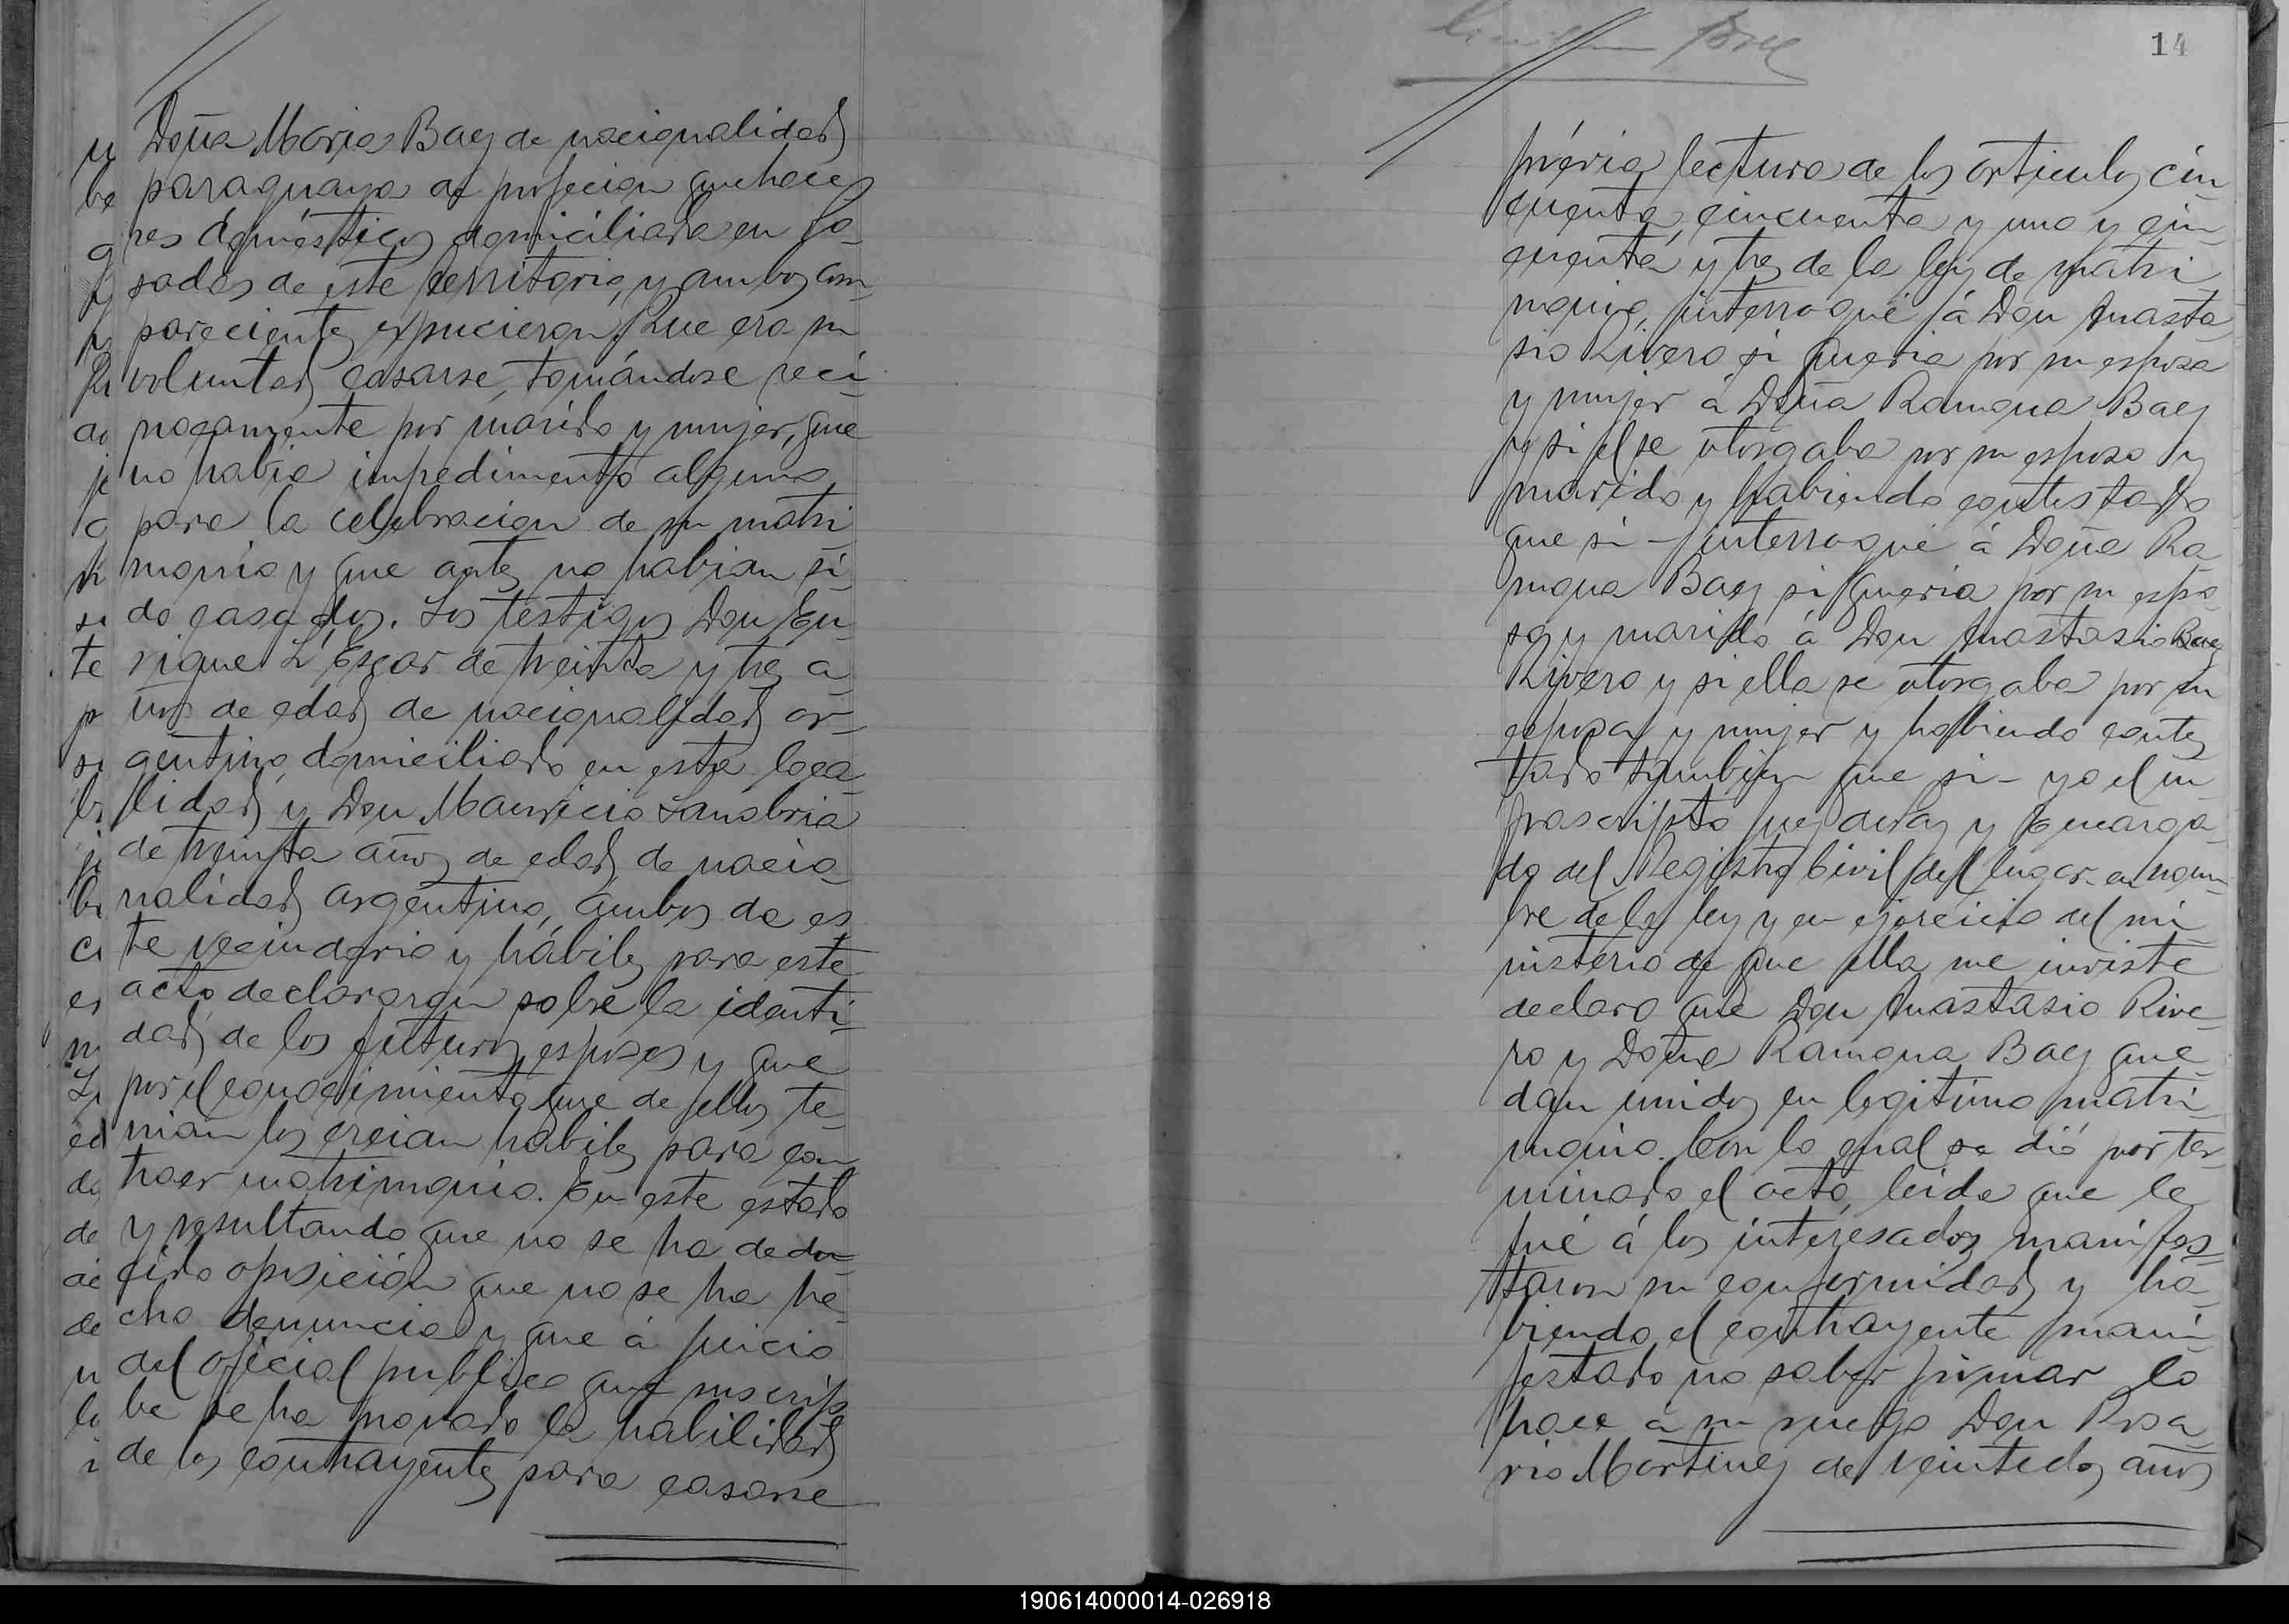 Doña Maria Baez de nacionalidad
paraguaya de profecion quehace
res domésticos domiciliada en Po
sadas de este territorio, y ambos com
parecientes expucieron: Que era su
voluntad casarse, tomándose reci
procamente por marido y mujer, que
no habia impedimento alguno
para la celebracion de su matri
monio y que antes no habian si
do casados. Los testigos Don En
rique L. Escar de treinta y tres a
ños de edad de nacionalidad ar
gentino, domiciliado en esta loca
lidad y Don Mauricio Sanabria
de treinta años de edad, de nacio
nalidad argentino, ambos de es
te vecindario y hábiles para este
acto, declararon sobre la identi
dad de los futuros esposos y que
por el conocimiento que de ellos te
nian los creian habiles para con
traer matrimonio. En este estado
y resultando que no se ha dedu
cido oposición que no se ha he
cho denuncia y que á juicio
del oficial publico que suscrip
be se ha provado la habilidad
de los contrayentes para casarse
14
prévia lectura de los articulos cin
cuenta, cincuenta y uno y cin
cuenta y tres de la ley de matri
monio, interrogué á Don Anasta
sio Rivero si queria por su esposa
y mujer á Doña Ramona Baez
y si el se otorgaba por su esposo y
marido y habiendo contestado
que si - interrogué á Doña Ra
mona Baez si queria por su espo
so y marido á Don Anastasio Baez
Rivero y si ella se otorgaba por su
esposa y mujer y habiendo contes
tado tambien que si - yo el in
frascripto juez de Paz y Encarga
do del Registro Civil del lugar en nom
bre de la ley y en ejercicio del mi
nisterio de que ella me inviste
declaro que Don Anastasio Rive
ro y Doña Ramona Baez que
dan unidos en legitimo matri
monio. Con lo cual se dió por ter
minado el acto, leida que le
fué á los interesados manifes
taron su conformidad y ha
biendo el contrayente mani
festado no saber firmar lo
hace á su ruego Don Rosa
rio Martinez de veintedos años
190614000014-026918